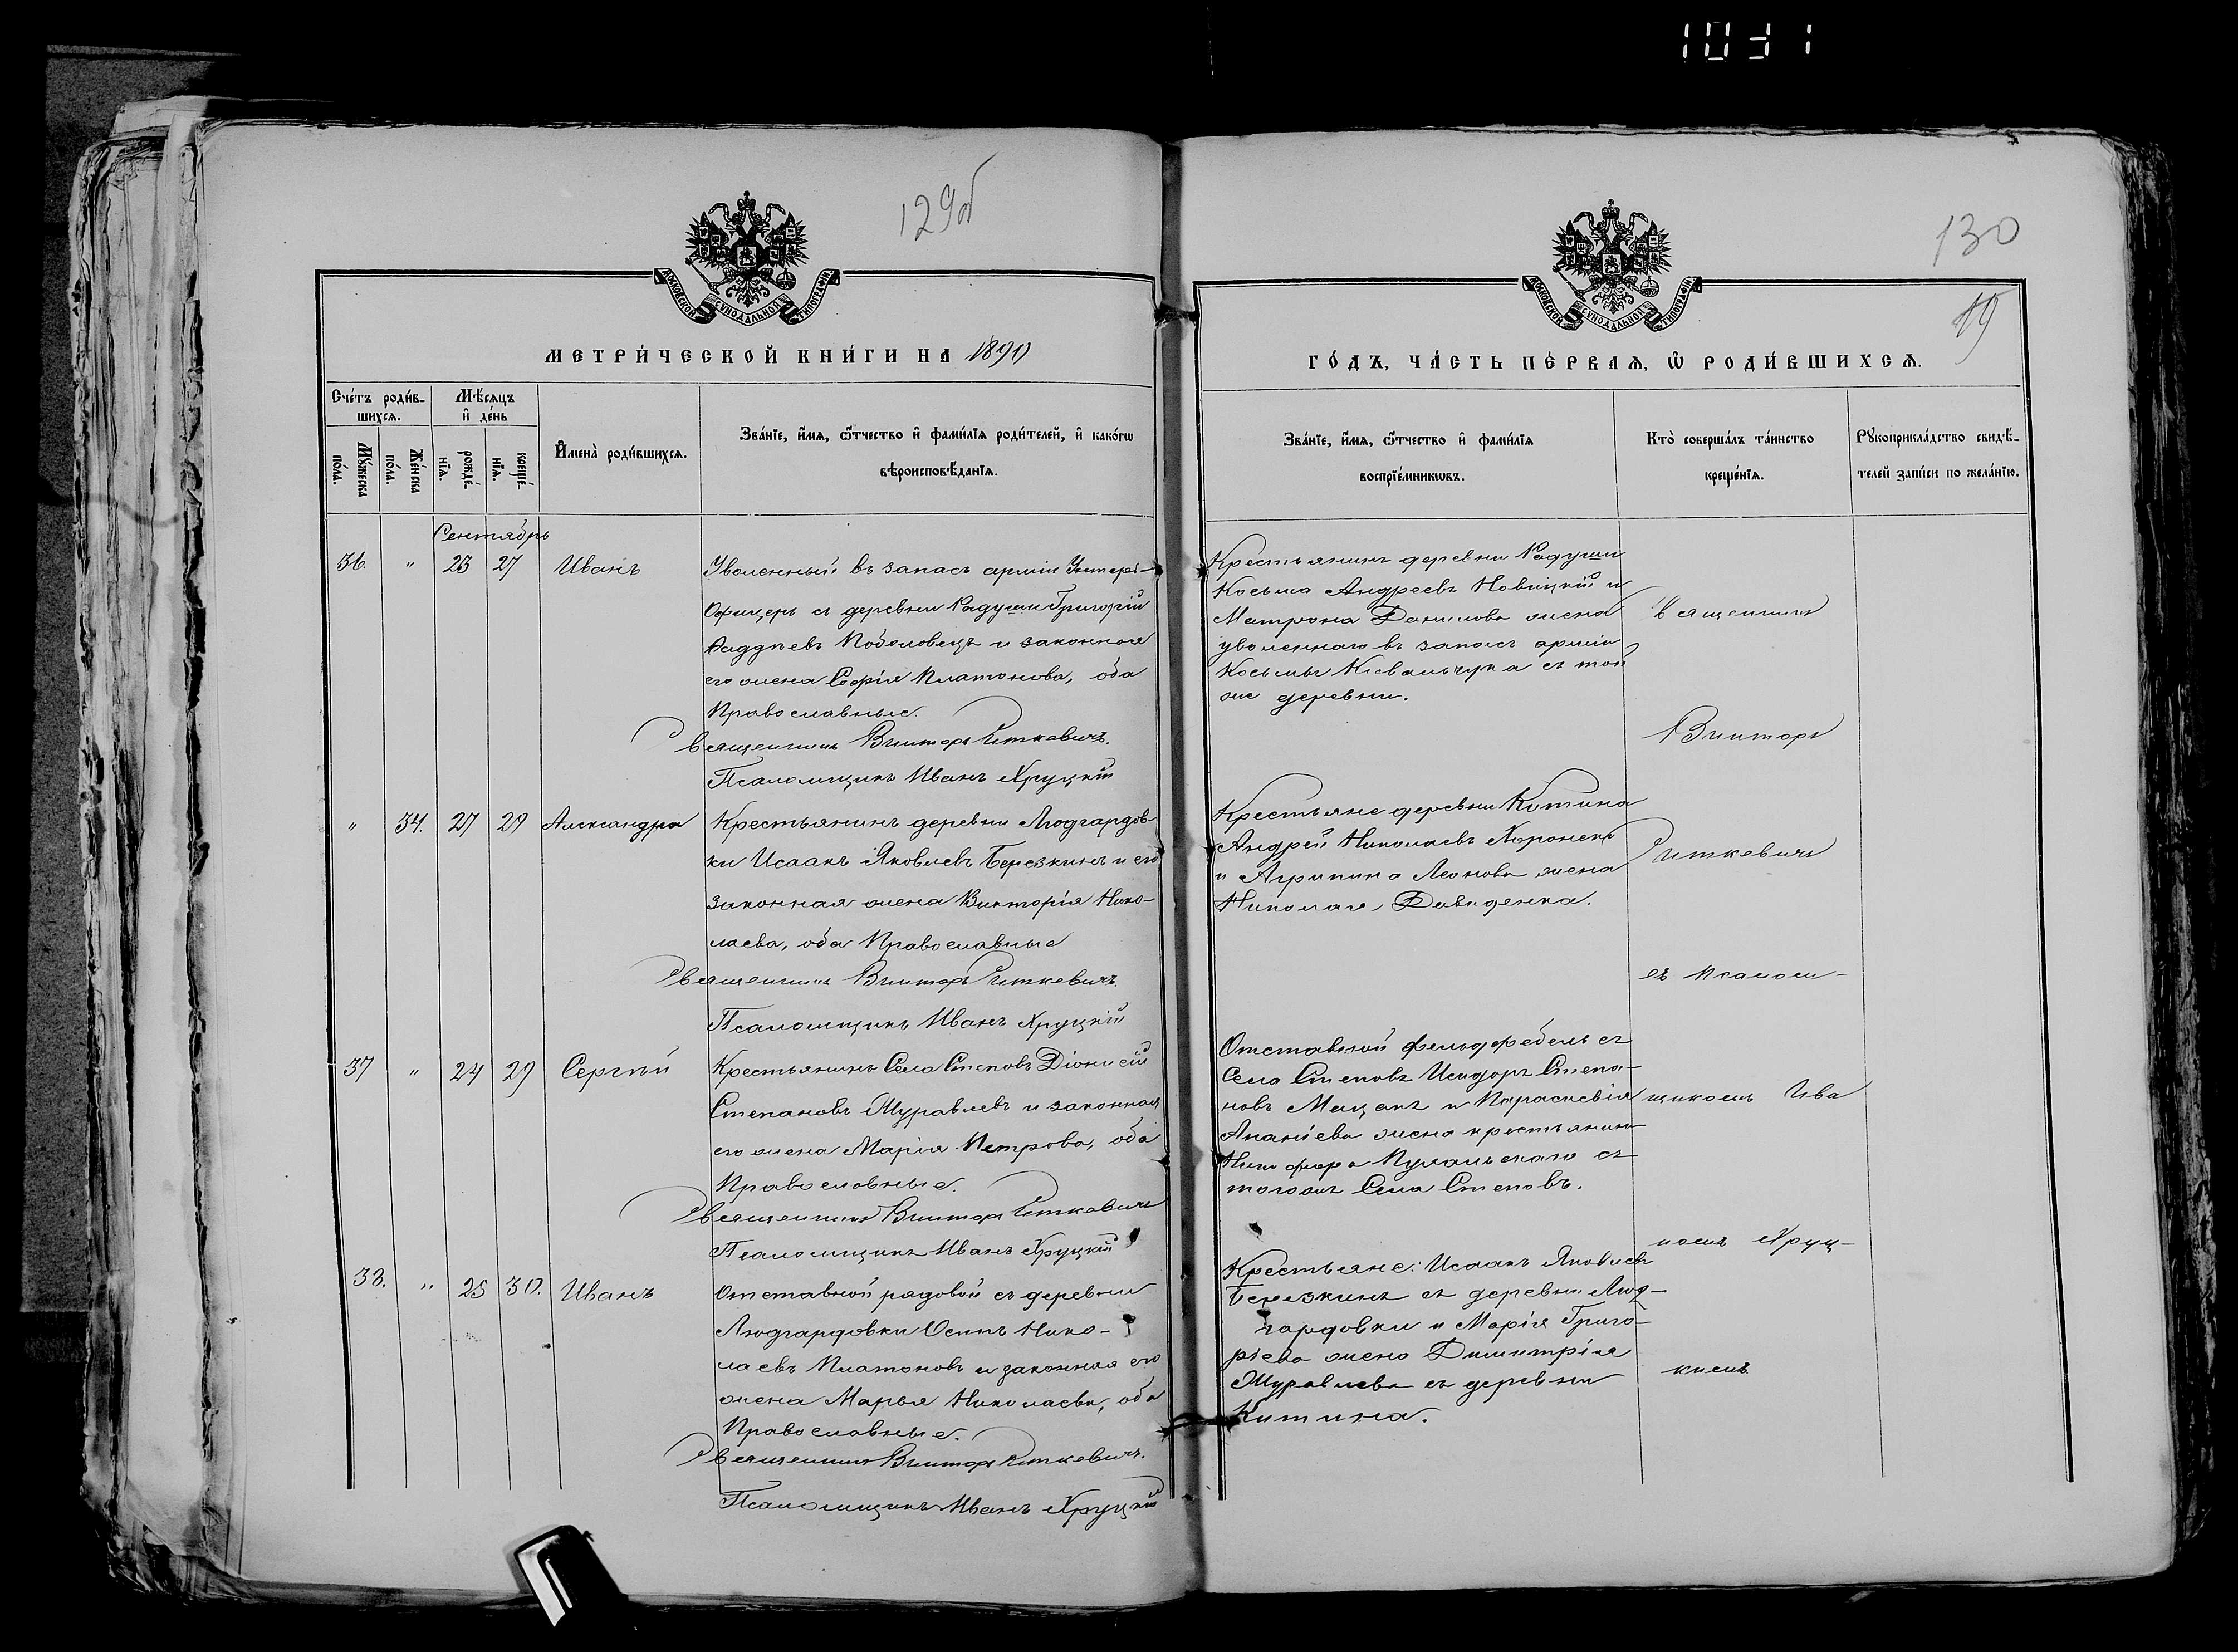 1031
129об
130
19
МОСКОВСКОЙ СѴНОДАЛЬНОЙ ТИПОГРАФІИ
МОСКОВСКОЙ СѴНОДАЛЬНОЙ ТИПОГРАФІИ
МЕТРИ́ЧЕСКОЙ КНИ́ГИ НА 1890
ГО́ДЪ, ЧА́СТЬ ПЕ́РВАѦ, Ѡ҆ РОДИ́ВШИХСѦ.
Сче́тъ роди́в-
шихсѧ.
Мѣ́сѧцъ
и҆ де́нь
Мꙋ́жеска
по́ла.
Же́нска
по́ла.
рожде́-
нїѧ.
креще́-
нїѧ.
И҆мена̀ роди́вшихсѧ.
Зва́нїе, и҆́мѧ, ѻ҆́тчество и҆ фами́лїѧ роди́телей, и҆ како́гѡ
вѣроисповѣ́данїѧ.
Зва́нїе, и҆́мѧ, ѻ҆́тчество и҆ фами́лїѧ
воспрїе́мникѡвъ.
Кто̀ соверша́лъ та́инство
креще́нїѧ.
Рꙋкоприкла́дство свидѣ́-
телей за́писи по жела́нїю.
Сентябрь
36. " 23 27 Иванъ
Уволенный въ запасъ арміи Унтеръ-
Офицеръ съ деревни Радуши Григорій
Фаддѣевъ Победовецъ и законная
его жена Софія Платонова, оба
Православные.
Священникъ Викторъ Титкевичъ.
Псаломщикъ Иванъ Хруцкій
Крестьянинъ деревни Радуши
Косьма Андреевъ Новицкій и
Матрона Данилова жена
уволеннаго въ запасъ арміи
Косьмы Ковальчука съ той
же деревни.
" 34. 27 29 Александра
Крестьянинъ деревни Людгардов-
ки Исаакъ Яковлевъ Березкинъ и его
законная жена Викторія Нико-
лаева, оба Православные
Священникъ Викторъ Титкевичъ.
Псаломщикъ Иванъ Хруцкій
Крестьяне деревни Китина
Андрей Николаевъ
и Агрипина Леонова жена
Николая Давиденка.
37 " 24 29 Сергѣй
Крестьянинъ Села Степовъ Діонисій
Степановъ Муравлевъ и законная
его жена Марія Петрова, оба
Православные.
Священникъ Викторъ Титкевичъ
Псаломщикъ Иванъ Хруцкій
Отставной фельдфебель съ
Села Степовъ Исидоръ Степа-
новъ Мацакъ и Параскевія
Ананіева жена крестьянина
Никифора съ
тогожъ Села Степовъ.
38. " 25 30. Иванъ
Отставной рядовой съ деревни
Людгардовки Осипъ Нико-
лаевъ Платоновъ и законная его
жена Марья Николаева, оба
Православные.
Священникъ Викторъ Титкевичъ.
Псаломщикъ Иванъ Хруцкій
Крестьяне: Исаакъ Яковлевъ
Березкинъ съ деревни Люд-
гардовки и Марія Григо-
ріева жена Димитрія
Муравлева съ деревни
Китина.
Священникъ
Викторъ
Титкевичъ
съ псалом-
щикомъ Ива
номъ Хруц-
кимъ